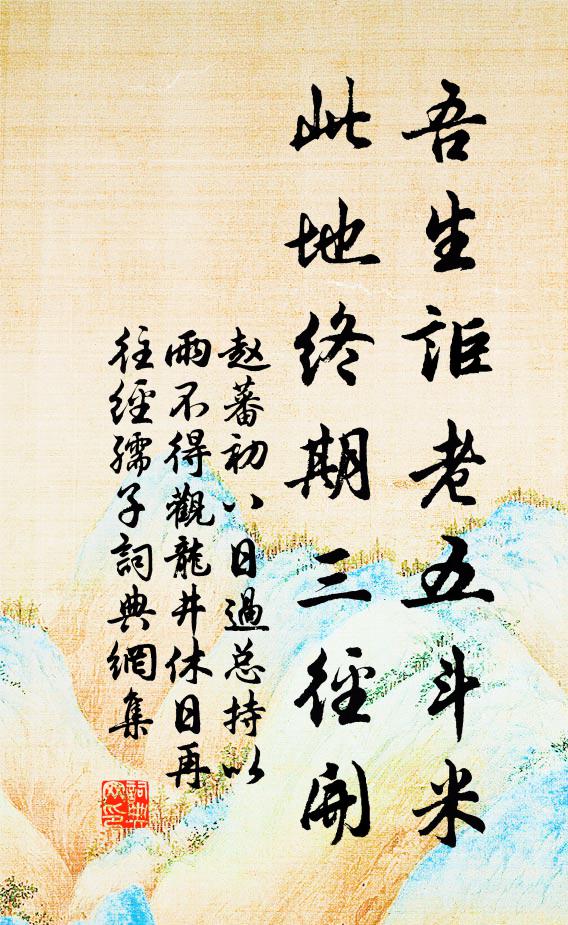 吾生詎老五斗米
此地終期三徑開
赵蕃初八日過总持以
雨不得觀龍井休日再
往經孺子詞典網集
詞典网印